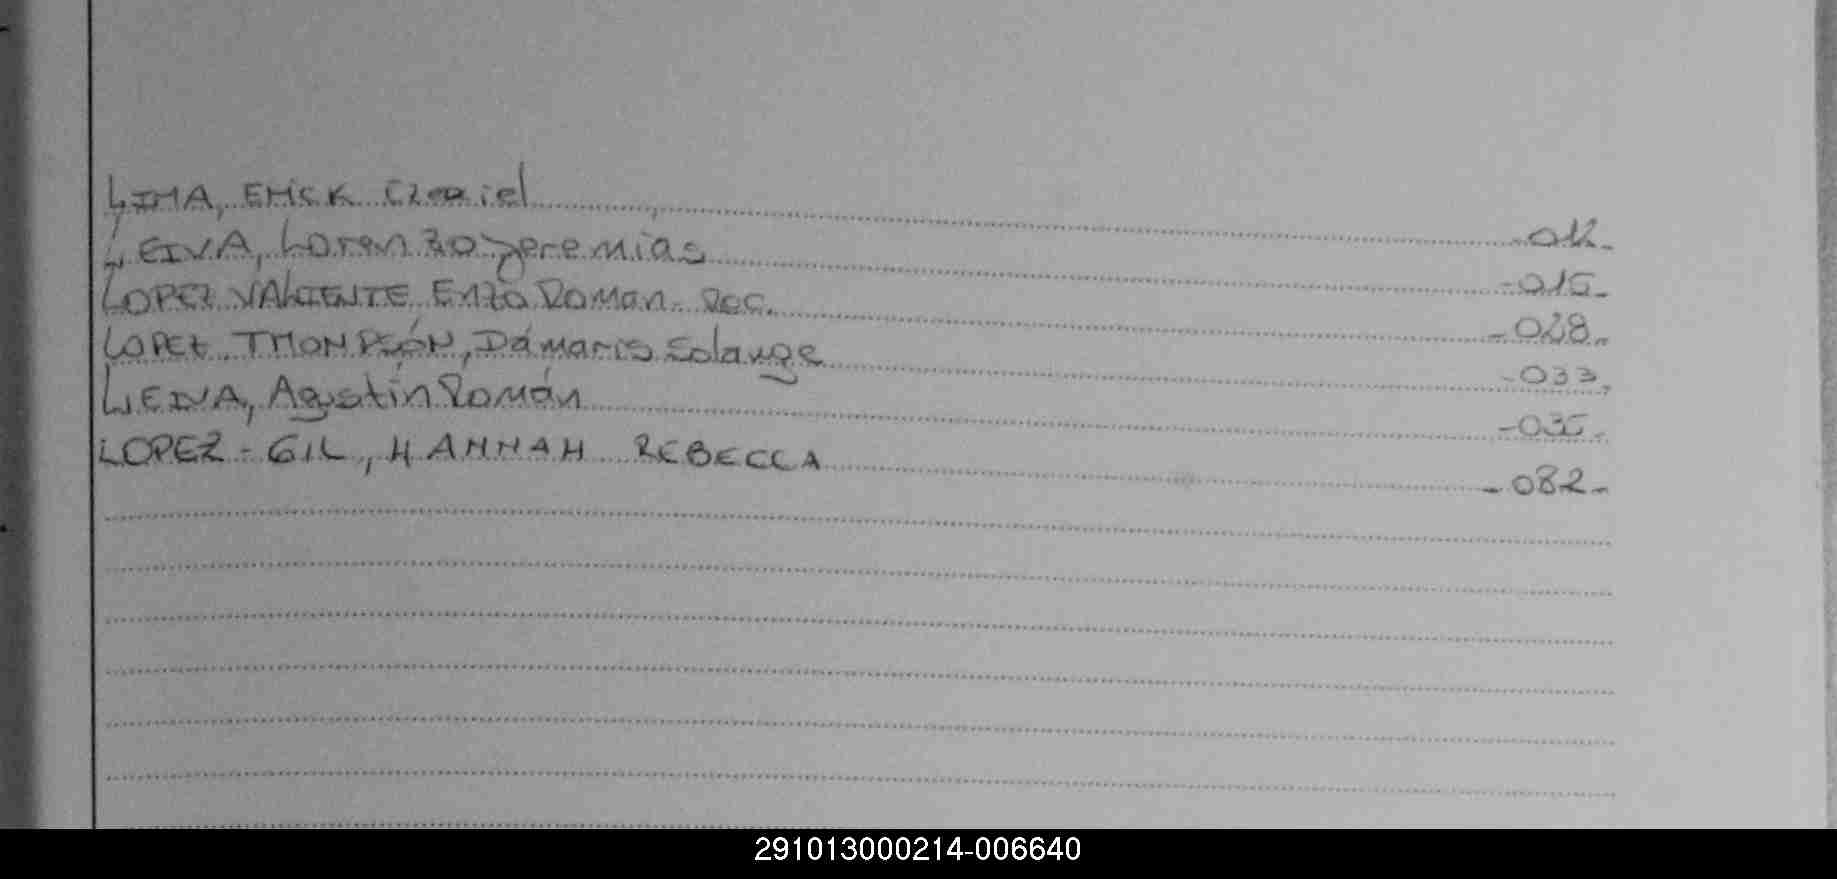 LIMA, EMICK Ezequiel 012-
LEIVA, Lorenzo Jeremias -015-
LOPEZ VALIENTE Enzo Roman. Rec. -028-
LOPEZ THOMPSÓN, Dámaris Solange -033-
LEIVA, Agustín Román -035-
LOPEZ - GIL, HANNAH REBECCA -082-
291013000214-006640